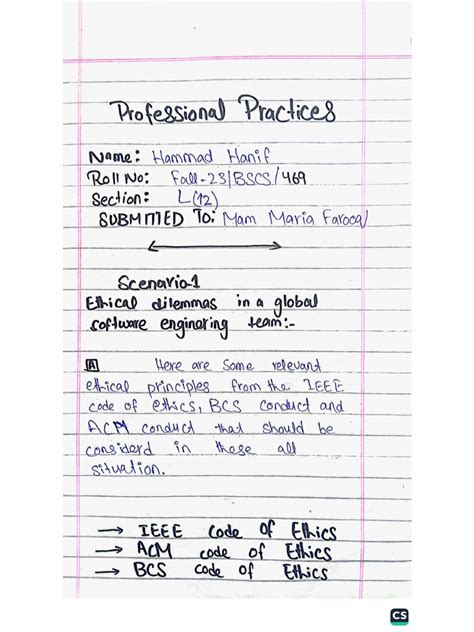 Professional Practices
Name: Hammad Hanif
Roll No: Fall-23/BSCS/469
Section: L(12)
SUBMITTED To: Mam Maria Farooq
Scenario-1
Ethical dilemmas in a global
software enginoring team:-
A Here are some relevant
ethical principles from the IEEE
code of ethics, BCS conduct and
ACM conduct that should be
considerd in these all
situation.
→ IEEE code of Ethics
→ ACM code of Ethics
→ BCS code of Ethics
CS